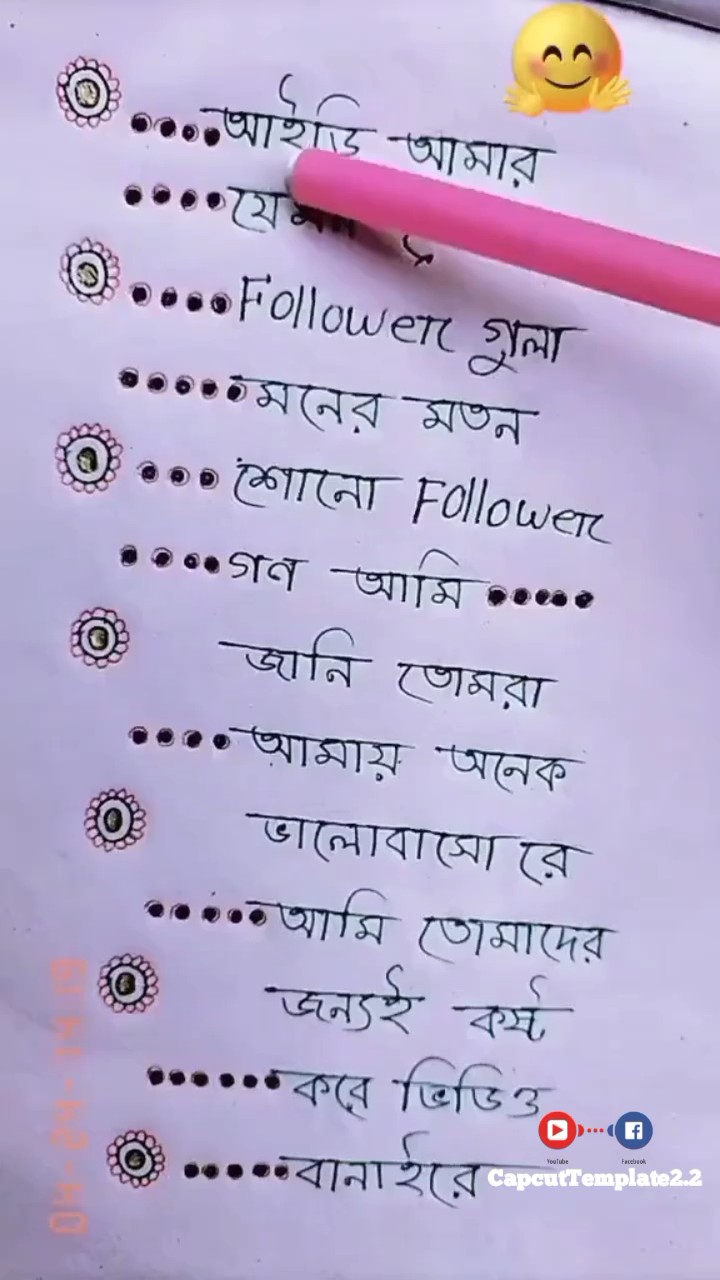 ....আইডি আমার
....যেমন
....Follower গুলা
.....মনের মতন
...শোনো Follower
....গন আমি.....
জানি তোমরা
....আমায় অনেক
ভালোবাসো রে
.....আমি তোমাদের
জন্যই কষ্ট
......করে ভিডিও
.....বানাইরে
YouTube
Facebook
CapcutTemplate2.2
04-24-14 19